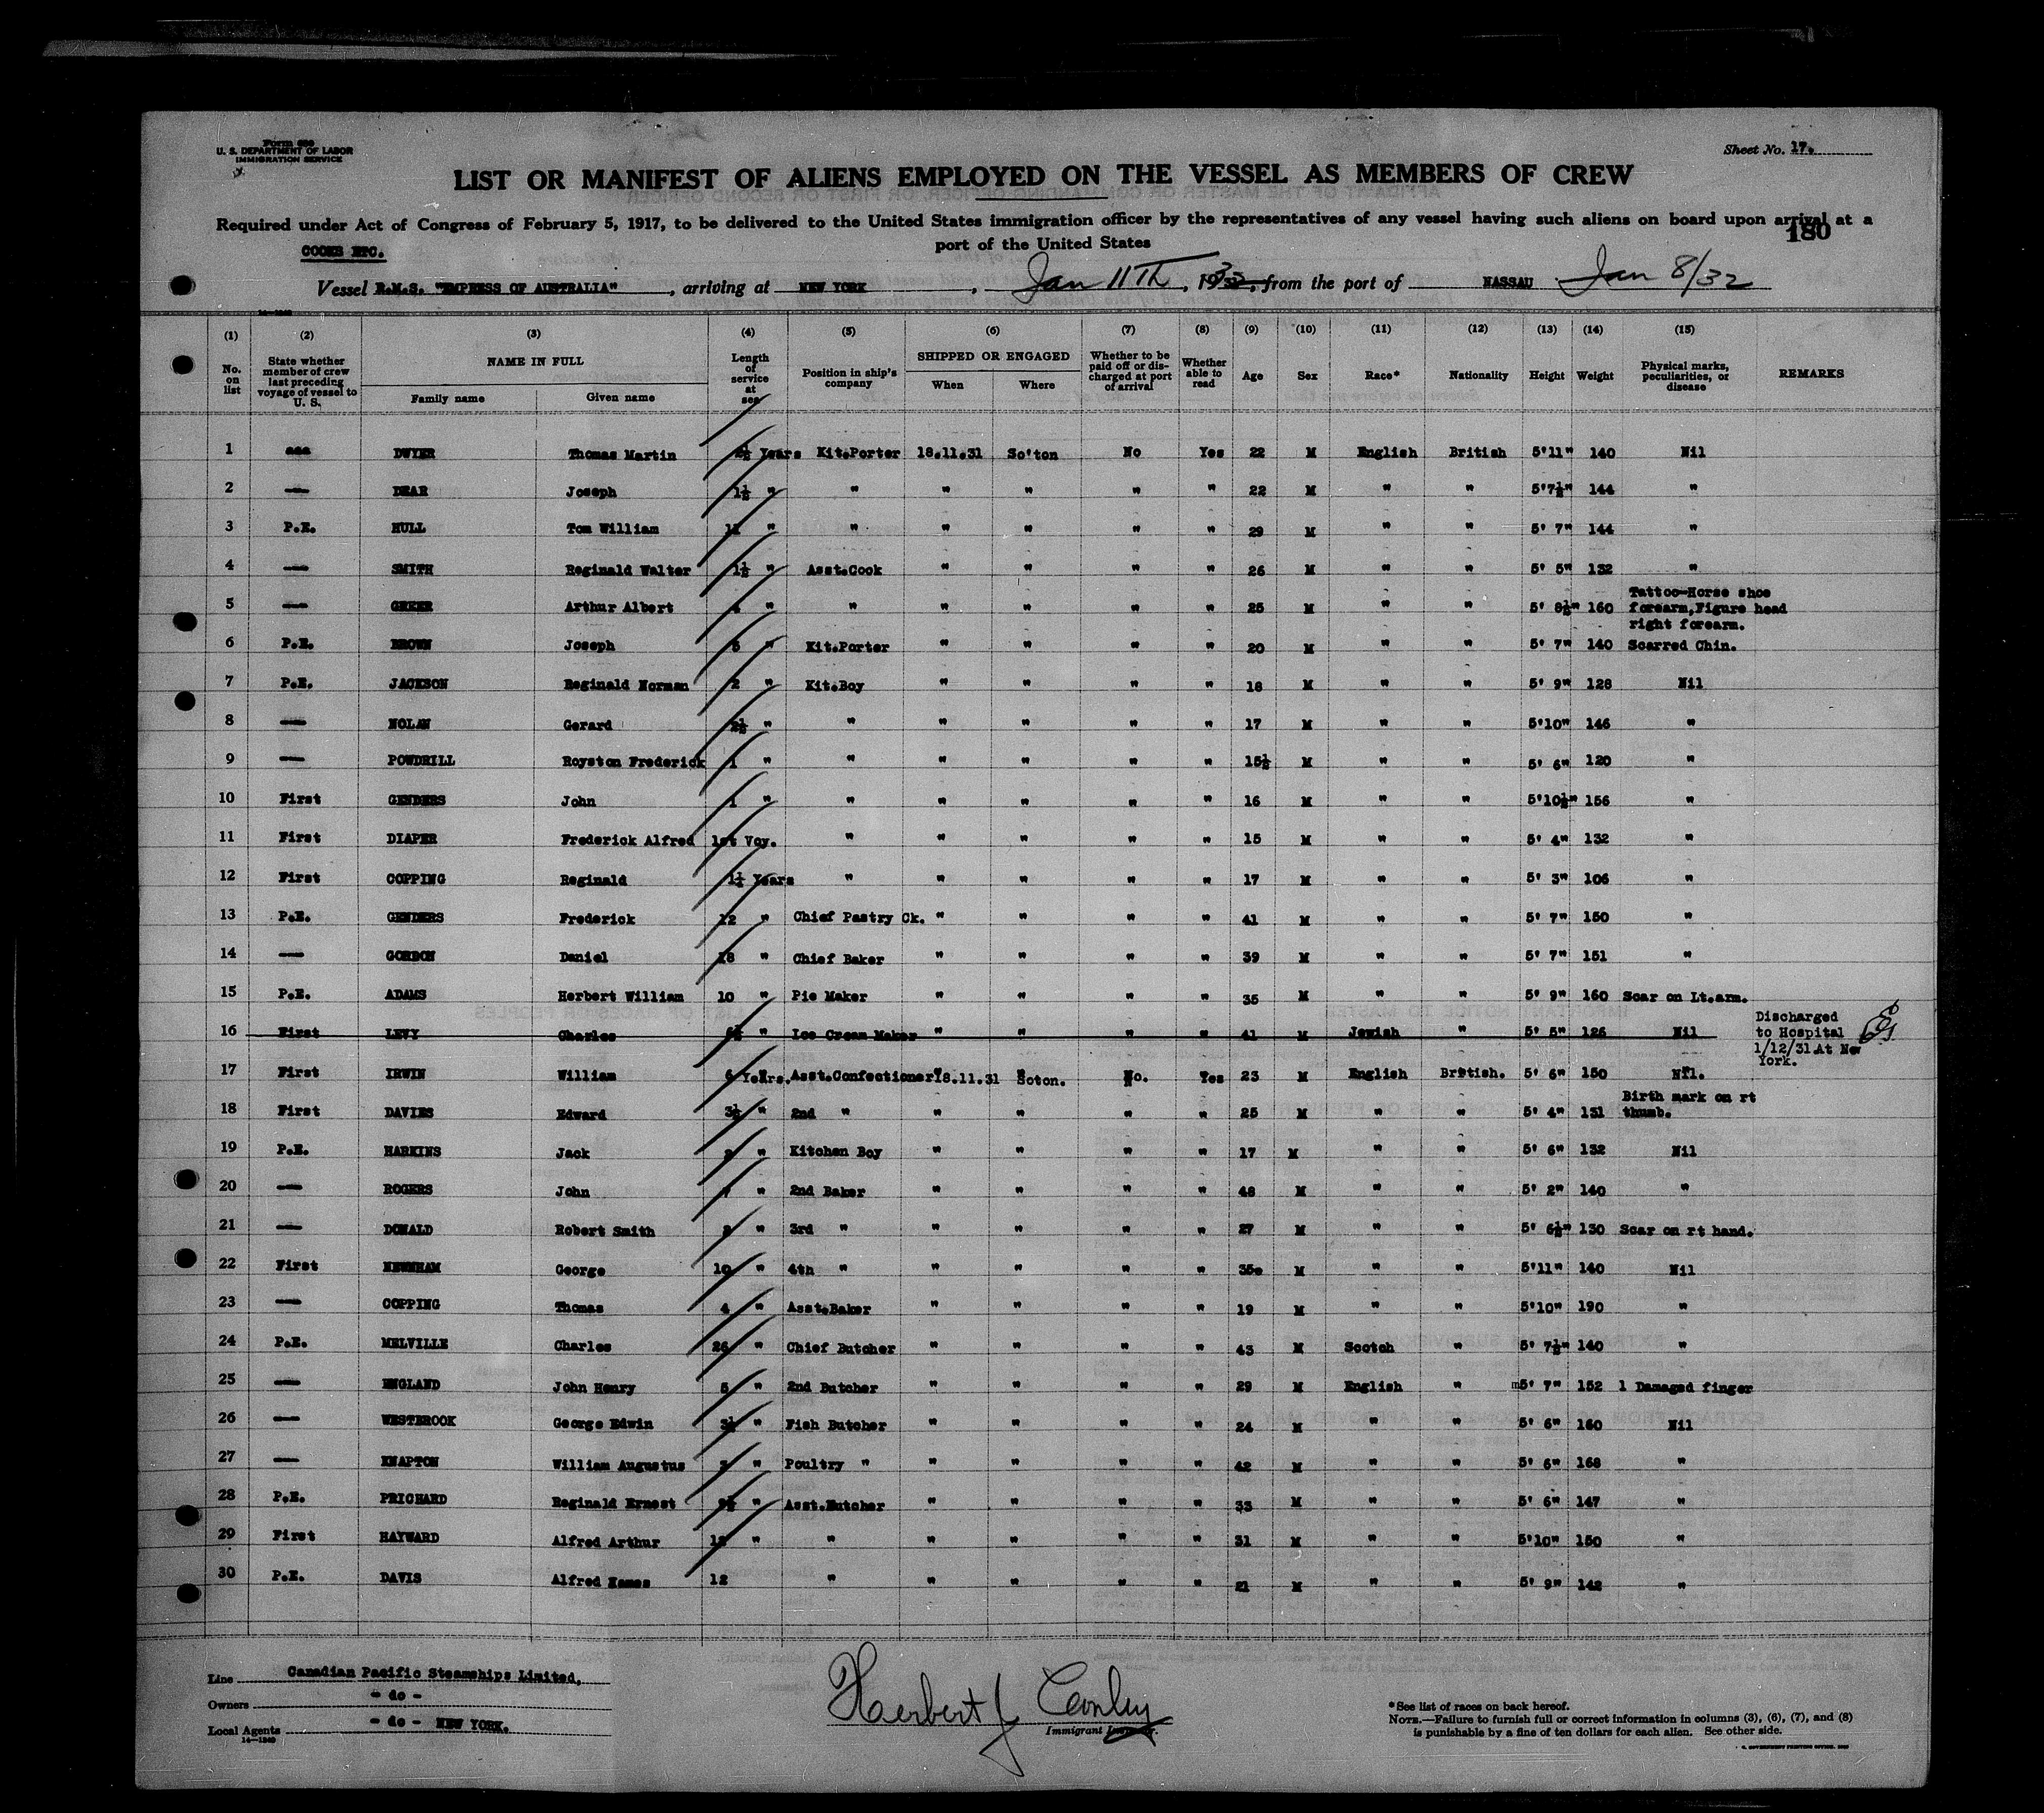 Form 689
U. S. DEPARTMENT OF LABOR
IMMIGRATION SERVICE
Sheet No. 17.
LIST OR MANIFEST OF ALIENS EMPLOYED ON THE VESSEL AS MEMBERS OF CREW
Required under Act of Congress of February 5, 1917, to be delivered to the United States immigration officer by the representatives of any vessel having such aliens on board upon arrival at a
port of the United States
180
COOKS ETC.
Vessel R.M.S. "EMPRESS OF AUSTRALIA", arriving at NEW YORK, Jan 11TH, 1932, from the port of NASSAU Jan 8/32
14—1240
(1) (2) (3) (4) (5) (6) (7) (8) (9) (10) (11) (12) (13) (14) (15)
No. on list | State whether member of crew last preceding voyage of vessel to U. S. | NAME IN FULL | Length of service at sea | Position in ship's company | SHIPPED OR ENGAGED | Whether to be paid off or discharged at port of arrival | Whether able to read | Age | Sex | Race* | Nationality | Height | Weight | Physical marks, peculiarities, or disease | REMARKS
Family name | Given name | When | Where
1 DWYER Thomas Martin 2½ Years Kit.Porter 18.11.31 So'ton No Yes 22 M English British 5'11" 140 Nil
2 — DEAR Joseph 1½ " " " " " " 22 M " " 5'7½" 144 "
3 P.E. HULL Tom William 11 " " " " " " 29 M " " 5' 7" 144 "
4 — SMITH Reginald Walter 1½ " Asst.Cook " " " " 26 M " " 5' 5" 132 "
5 — GREER Arthur Albert 4 " " " " " " 25 M " " 5' 8½" 160 Tattoo-Horse shoe forearm,Figure head right forearm.
6 P.E. BROWN Joseph 5 " Kit.Porter " " " " 20 M " " 5' 7" 140 Scarred Chin.
7 P.E. JACKSON Reginald Norman 2 " Kit.Boy " " " " 18 M " " 5' 9" 128 Nil
8 — NOLAN Gerard 2½ " " " " " " 17 M " " 5'10" 146 "
9 — POWDRILL Royston Frederick 1 " " " " " " 15½ M " " 5' 6" 120 "
10 First GENDERS John 1 " " " " " " 16 M " " 5'10½" 156 "
11 First DIAPER Frederick Alfred 1st Voy. " " " " " 15 M " " 5' 4" 132 "
12 First COPPING Reginald 1½ Years " " " " " 17 M " " 5' 3" 106 "
13 P.E. GENDERS Frederick 12 " Chief Pastry Ck. " " " " 41 M " " 5' 7" 150 "
14 — GORDON Daniel 18 " Chief Baker " " " " 39 M " " 5' 7" 151 "
15 P.E. ADAMS Herbert William 10 " Pie Maker " " " " 35 M " " 5' 9" 160 Scar on Lt.arm.
16 First LEVY Charles 6½ " Ice Cream Maker " " " " 41 M Jewish " 5' 5" 126 Nil Discharged to Hospital 1/12/31 At New York.
17 First IRWIN William 6 Years. Asst.Confectioner 18.11.31 Soton. No. Yes 23 M English British. 5' 6" 150 Nil.
18 First DAVIES Edward 3½ " 2nd " " " " " 25 M " " 5' 4" 131 Birth mark on rt thumb.
19 P.E. HARKINS Jack 2 " Kitchen Boy " " " " 17 M " " 5' 6" 132 Nil
20 — ROGERS John 7 " 2nd Baker " " " " 48 M " " 5' 2" 140 "
21 — DONALD Robert Smith 2 " 3rd " " " " " 27 M " " 5' 6½" 130 Scar on rt hand.
22 First NEWNHAM George 10 " 4th " " " " " 35 M " " 5'11" 140 Nil
23 — COPPING Thomas 4 " Asst.Baker " " " " 19 M " " 5'10" 190 "
24 P.E. MELVILLE Charles 26 " Chief Butcher " " " " 43 M Scotch " 5' 7½" 140 "
25 — ENGLAND John Henry 5 " 2nd Butcher " " " " 29 M English " 5' 7" 152 1 Damaged finger
26 — WESTBROOK George Edwin 3½ " Fish Butcher " " " " 24 M " " 5' 6" 160 Nil
27 — KNAPTON William Augustus " Poultry " " " " " 42 M " " 5' 6" 168 "
28 P.E. PRICHARD Reginald Ernest " Asst.Butcher " " " " 33 M " " 5' 6" 147 "
29 First HAYWARD Alfred Arthur 12 " " " " " " 31 M " " 5'10" 150 "
30 P.E. DAVIS Alfred Eames 12 " " " " " 21 M " " 5' 9" 142 "
Line Canadian Pacific Steamships Limited,
Owners - do -
Local Agents - do - NEW YORK.
14—1240
Herbert J Conley
Immigrant Inspector.
*See list of races on back hereof.
NOTE.—Failure to furnish full or correct information in columns (3), (6), (7), and (8)
is punishable by a fine of ten dollars for each alien. See other side.